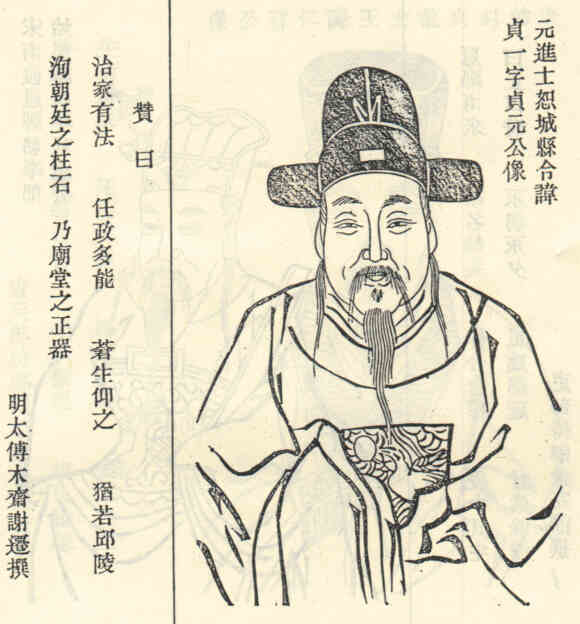 元進士恕城縣令諱
貞一字貞元公像
贊曰
治家有法 任政多能 蒼生仰之 猶若邱陵
洵朝廷之柱石 乃廟堂之正器
明太傅木齋謝遷撰